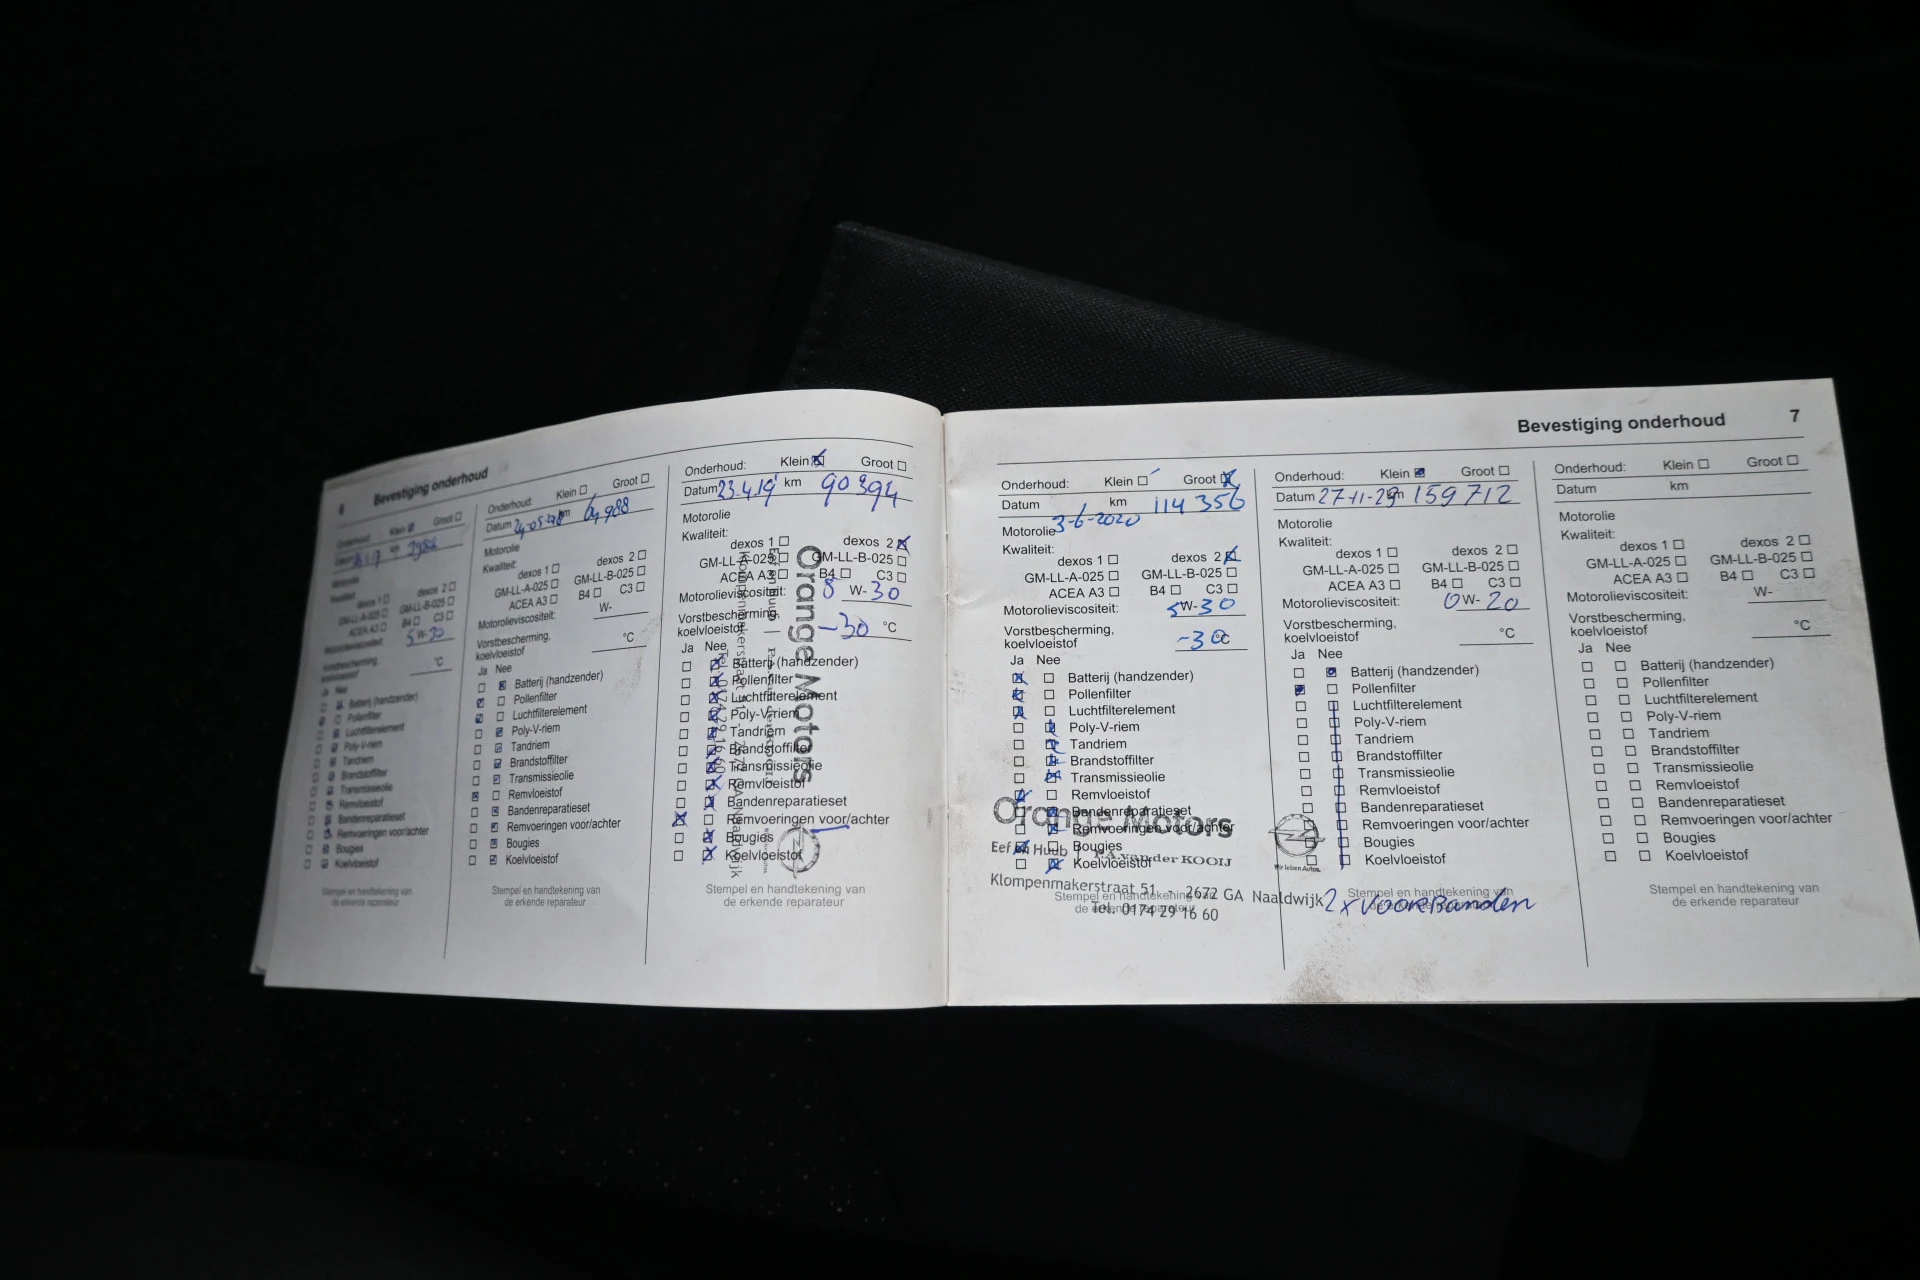 6 Bevestiging onderhoud
Onderhoud: Klein Groot
Datum km
Motorolie
Kwaliteit:
dexos 1 dexos 2
GM-LL-A-025 GM-LL-B-025
ACEA A3 B4 C3
Motorolieviscositeit: 5 W-30
Vorstbescherming,
koelvloeistof °C
Ja Nee
Batterij (handzender)
Pollenfilter
Luchtfilterelement
Poly-V-riem
Tandriem
Brandstoffilter
Transmissieolie
Remvloeistof
Bandenreparatieset
Remvoeringen voor/achter
Bougies
Koelvloeistof
Stempel en handtekening van
de erkende reparateur
Onderhoud: Klein Groot
Datum km
Motorolie
Kwaliteit:
dexos 1 dexos 2
GM-LL-A-025 GM-LL-B-025
ACEA A3 B4 C3
Motorolieviscositeit: W-
Vorstbescherming,
koelvloeistof °C
Ja Nee
Batterij (handzender)
Pollenfilter
Luchtfilterelement
Poly-V-riem
Tandriem
Brandstoffilter
Transmissieolie
Remvloeistof
Bandenreparatieset
Remvoeringen voor/achter
Bougies
Koelvloeistof
Stempel en handtekening van
de erkende reparateur
Onderhoud: Klein Groot
Datum 23.4.19 km 90394
Motorolie
Kwaliteit:
dexos 1 dexos 2
GM-LL-A-025 GM-LL-B-025
ACEA A3 B4 C3
Motorolieviscositeit: W-30
Vorstbescherming,
koelvloeistof -30 °C
Ja Nee
Batterij (handzender)
Pollenfilter
Luchtfilterelement
Poly-V-riem
Tandriem
Brandstoffilter
Transmissieolie
Remvloeistof
Bandenreparatieset
Remvoeringen voor/achter
Bougies
Koelvloeistof
Orange Motors
Stempel en handtekening van
de erkende reparateur
Bevestiging onderhoud 7
Onderhoud: Klein Groot
Datum km 114 356
Motorolie 3-6-2020
Kwaliteit:
dexos 1 dexos 2
GM-LL-A-025 GM-LL-B-025
ACEA A3 B4 C3
Motorolieviscositeit: 5W-30
Vorstbescherming,
koelvloeistof -30 °C
Ja Nee
Batterij (handzender)
Pollenfilter
Luchtfilterelement
Poly-V-riem
Tandriem
Brandstoffilter
Transmissieolie
Remvloeistof
Bandenreparatieset
Remvoeringen voor/achter
Bougies
Koelvloeistof
Orange Motors
Eef en Huub | F.A. van der KOOIJ
Klompenmakerstraat 51 - 2672 GA Naaldwijk
Tel. 0174 29 16 60
Wir leben Autos.
Stempel en handtekening van
de erkende reparateur
Onderhoud: Klein Groot
Datum 27-11-23 km 159712
Motorolie
Kwaliteit:
dexos 1 dexos 2
GM-LL-A-025 GM-LL-B-025
ACEA A3 B4 C3
Motorolieviscositeit: 0W-20
Vorstbescherming,
koelvloeistof °C
Ja Nee
Batterij (handzender)
Pollenfilter
Luchtfilterelement
Poly-V-riem
Tandriem
Brandstoffilter
Transmissieolie
Remvloeistof
Bandenreparatieset
Remvoeringen voor/achter
Bougies
Koelvloeistof
Stempel en handtekening van
de erkende reparateur
2x voorbanden
Onderhoud: Klein Groot
Datum km
Motorolie
Kwaliteit:
dexos 1 dexos 2
GM-LL-A-025 GM-LL-B-025
ACEA A3 B4 C3
Motorolieviscositeit: W-
Vorstbescherming,
koelvloeistof °C
Ja Nee
Batterij (handzender)
Pollenfilter
Luchtfilterelement
Poly-V-riem
Tandriem
Brandstoffilter
Transmissieolie
Remvloeistof
Bandenreparatieset
Remvoeringen voor/achter
Bougies
Koelvloeistof
Stempel en handtekening van
de erkende reparateur